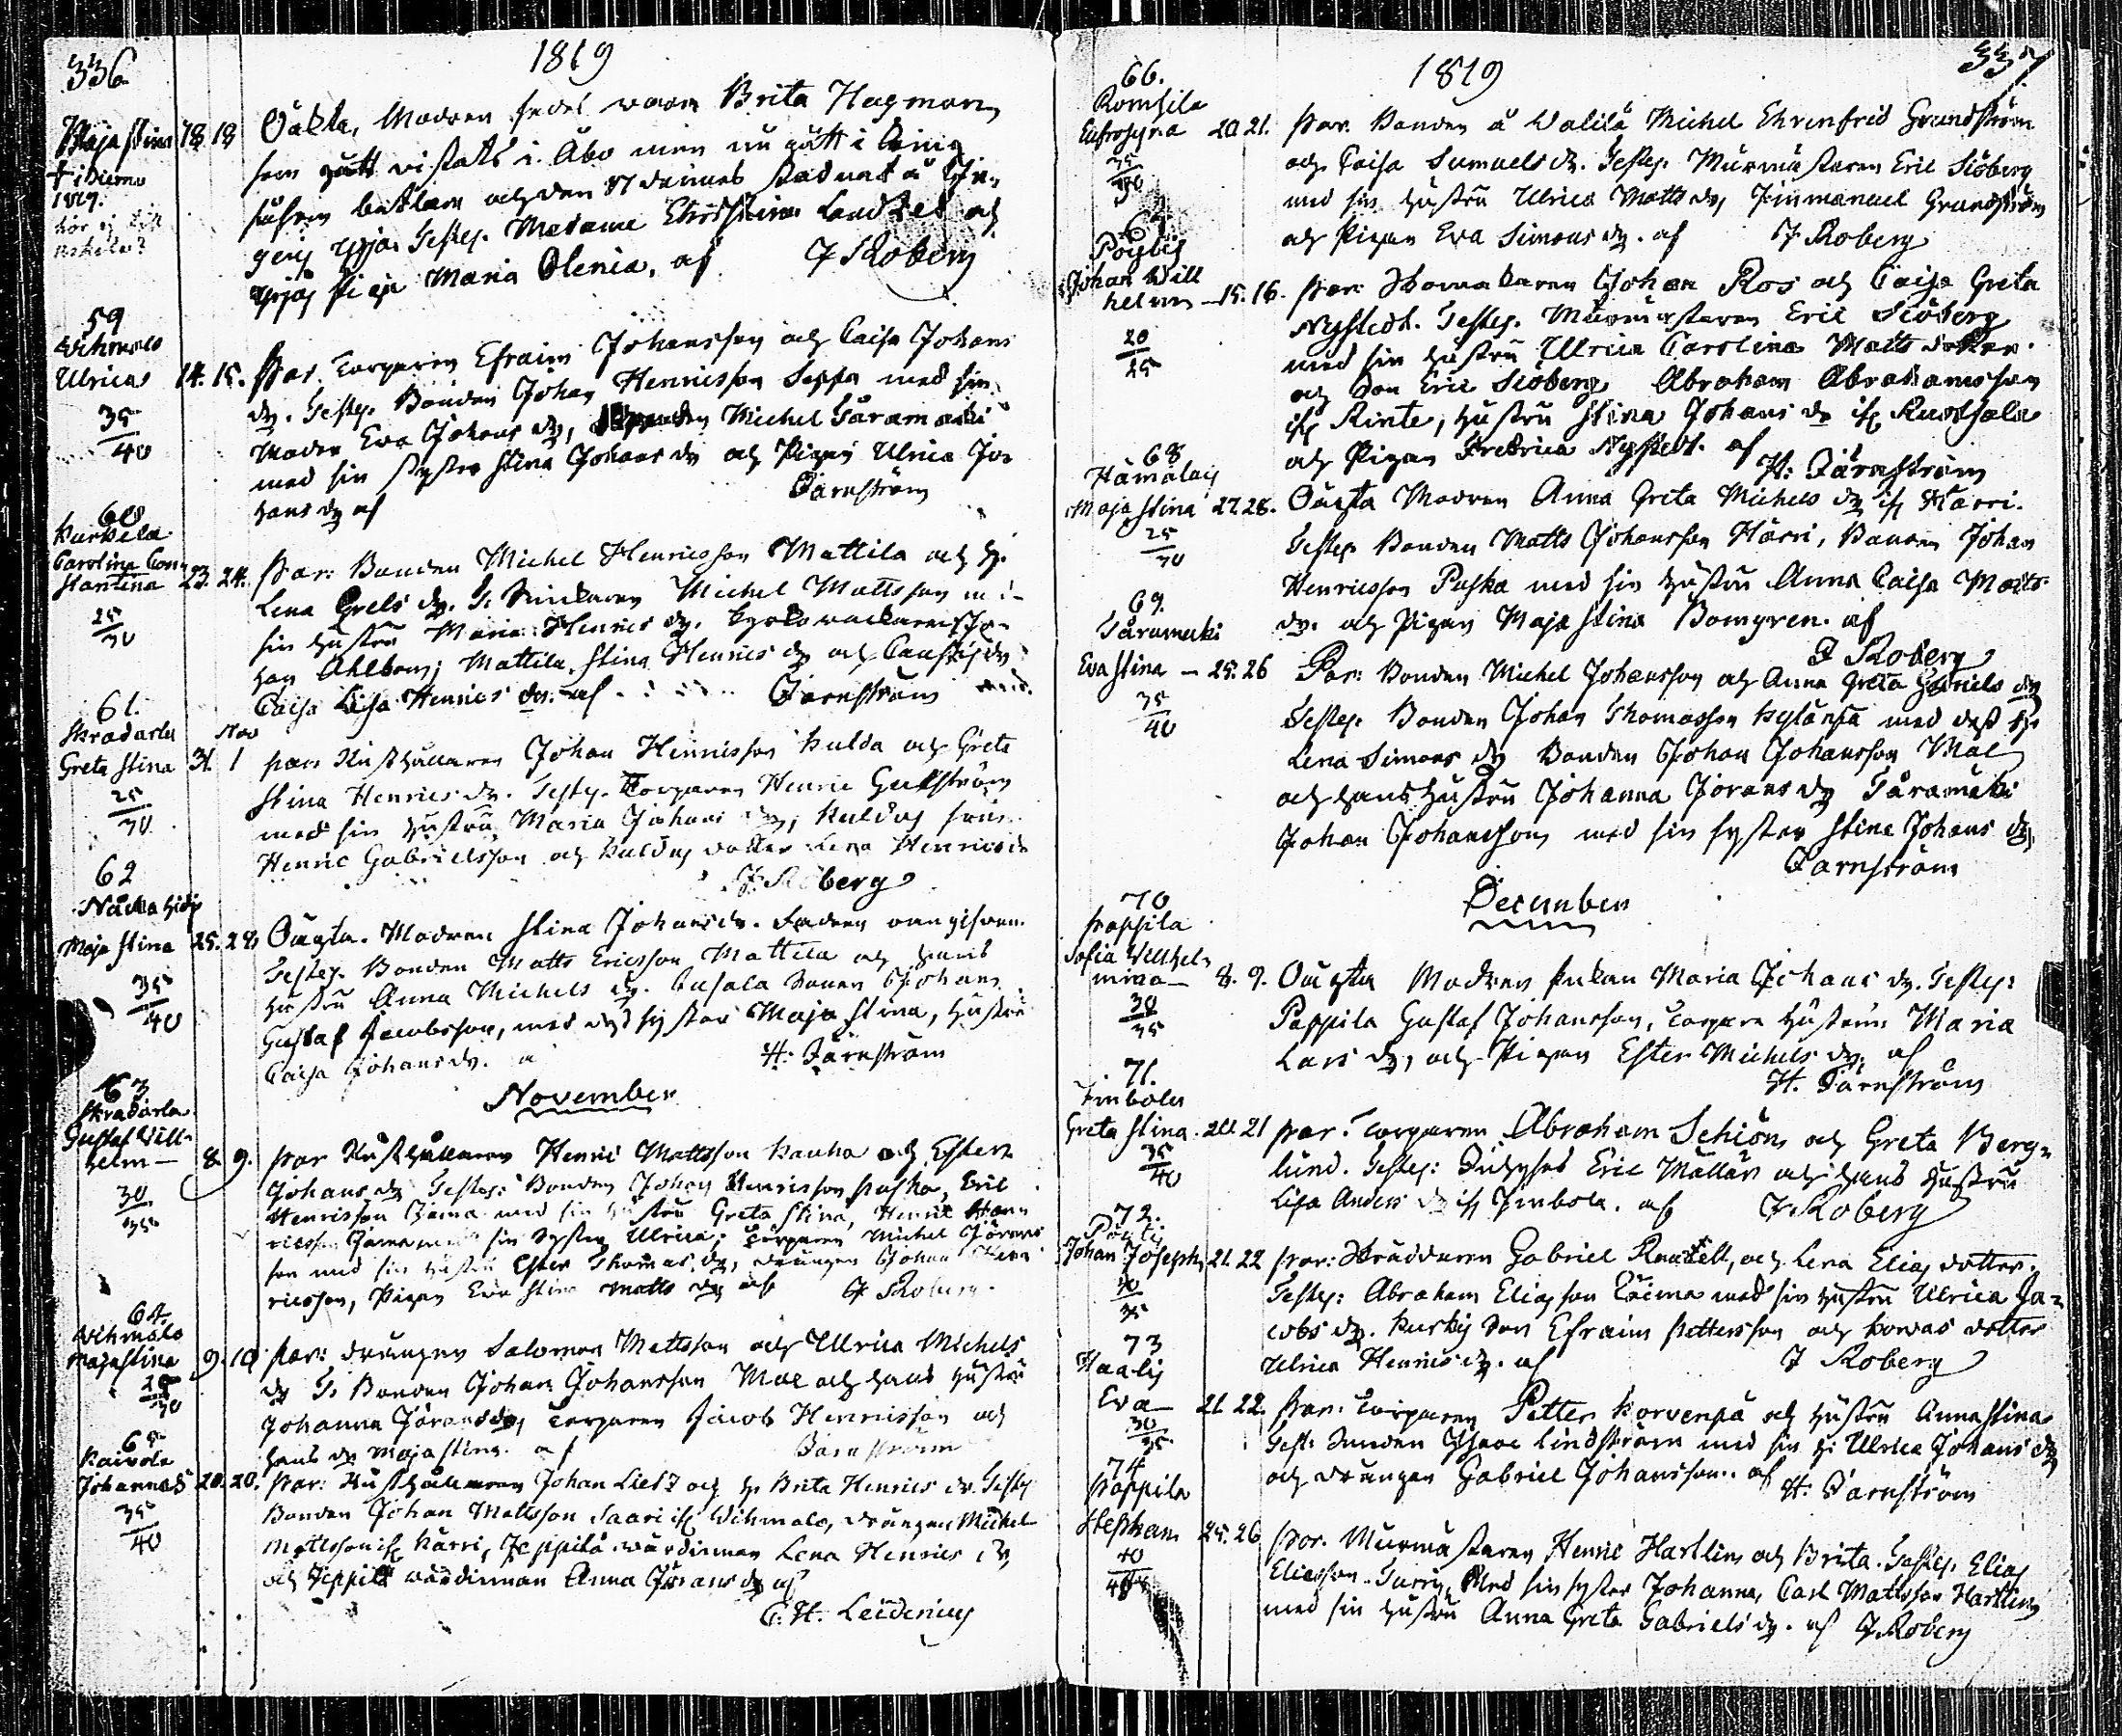 336
1819
Maja Stina 18 18
† idiemo
1819.
Oäkta, Modren Brita Hagman
som vistats i Åbo men nu gått i
och den
Testes. Madame Christina och
Pigan Maria Olenia, af J Roberg
59
Wihmalo
Ulrica 14. 15.
35
40
Par. Torparen Efraim Johansson och Caisa Johans
dr. Testes. Bonden Johan Henricsson Seppa med sin
Moder Eva Johans dr, Michel Säramäki
med sin Syster Stina Johans dr och Pigan Ulrica Jo
hans dr af Järnström
60
Kurkela
Carolina Con
stantina 23. 24.
25
30
Par: Bonden Michel Henricsson Mattila och H.
Lena Grels dr. T. Michel Mattsson
sin Hustru Maria Henrics dr.
han Ahlbom, Mattila, Stina Henrics dr och
Caisa Lisa Henrics dr. af Järnström
61.
Nov
Greta Stina 31. 1
25
30
Par: Rusthållaren Johan Henricsson Kulda och Greta
Stina Henrics dr. Testes. Torparen Henric
med sin Hustru Maria Johans dr,
Henric Gabrielsson och dotter Lena Henrics dr
J Roberg
62
Maja Stina 25. 28
35
40
Oägta. Modren Stina Johans dr. Fadren
Testes. Bonden Matts Ericsson Mattila och hans
Hustru Anna Michels dr. Johan
Gustaf Jacobsson, med dess syster Maja Stina, Hustru
Caisa Johans dr. H: Järnström
November
63
Gustaf Will-
helm— 8. 9.
30
35
Par Rusthållaren Henric Mattsson Kauha och Ester
Johans dr Testes: Bonden Johan Henricsson Paska, Eric
Henricsson med sin Hustru Greta Stina, Henric Hen
ricsson med sin Syster Ulrica, Torparen Michel Jörans
son med sin Hustru Ester Thomas dr, Drängen Johan Hen
ricsson, Pigan Eva Stina Matts dr af J Roberg.
64.
Wihmalo
Maja Stina 9. 10
30
Par: Drängen Salomon Mattsson och Ulrica Michels
dr T. Bonden Johan Johansson Mae och hans Hustru
Johanna Jörans dr, Torparen Jacob Henricsson och
hans dr Maja Stina. af Järnström
65
Kaivola
Johannes 20. 20.
35
40
Par: Rusthållaren Johan Lietz och H Brita Henrics dr. Testes
Bonden Johan Mattsson Saari if Wihmalo, Drängen Michel
Mattsson if Kärri, Jeppilä wärdinnan Lena Henrics dr,
och Jeppilä wärdinnan Anna Jörans dr af
C. H. Leidenius
337
1819
66.
Romsila
Eufrosyna 20. 21.
35
40
Par. Bonden å Walila Michel Ehrenfrid Grundström
och Caisa Samuels dr. Testes. Murmästaren Eric Siöberg
med sin Hustru Ulrica Matts dr, Immanuel Grundström
och Pigan Eva Simons dr. af J Roberg
67
Pöytis
Johan Will
helm —15. 16.
20
25
Par: Skomakaren Johan Ros och Caisa Greta
Nystedt. Testes. Murmästaren Eric Siöberg
med sin Hustru Ulrica Carolina Matts dotter
och Son Eric Siöberg, Abraham Abrahamsson
if Rinte, Hustru Stina Johans dr if
och Pigan Fredrica Nystedt. af H: Järnström
68
Hämaläis
Maja Stina 27. 28.
25
30
Oägta Modren Anna Greta Michels dr if Kärri.
Testes Bonden Matts Johansson Härri, Bonden Johan
Henricsson Paska med sin Hustru Anna Caisa Matts
dr. och Pigan Maja Stina Bomgren. af
J Roberg
69.
Säramäki
Eva Stina — 25. 26
35
40
Par: Bonden Michel Johansson och Anna Greta dr
Testes. Bonden Johan Thomasson Kylänpä med dess H.
Lena Simons dr Bonden Johan Johansson Mae
och hans Hustru Johanna Jörans dr Säramäki
Johan Johansson med sin syster Stina Johans dr,
Järnström
December
70
Pappila
Sofia Willhel-
mina— 8. 9.
30
35
Oägta Modren Maria Johans dr. Testes:
Pappila Gustaf Johansson, Torpare Hustrun Maria
Lars dr, och Pigan Ester Michels dr. af
H. Järnström
71.
Jinbola
Greta Stina. 20. 21
35
40
Par. Torparen Abraham Schiön och Greta Berg-
lund. Testes: Eric Mällär och hans Hustru
Lisa Anders dr if Jinbola. af J Roberg
72.
Pöytis
Johan Joseph 21. 22
30
35
Par: Skräddaren Gabriel och Lena Elias dotter.
Testes: Abraham Eliasson med sin Hustru Ulrica Ja-
cobs dr. Son Efraim Pettersson och dotter
Ulrica Henrics dr. af J Roberg
73
Haalis
Eva — 21. 22.
30
35
Par: Torparen Petter Korvenpä och Hustru Anna Stina
Test: Isaac Lindström med sin H: Ulrica Johans dr
och Drängen Gabriel Johansson. af H. Järnström
74
Pappila
Stephan 25. 26
40
45
Par. Murmästaren Henric Hartlin och Brita. Testes. Elias
Eliasson Med sin syster Johanna, Carl Mattsson Hartlin
med sin Hustru Anna Greta Gabriels dr. af J Roberg